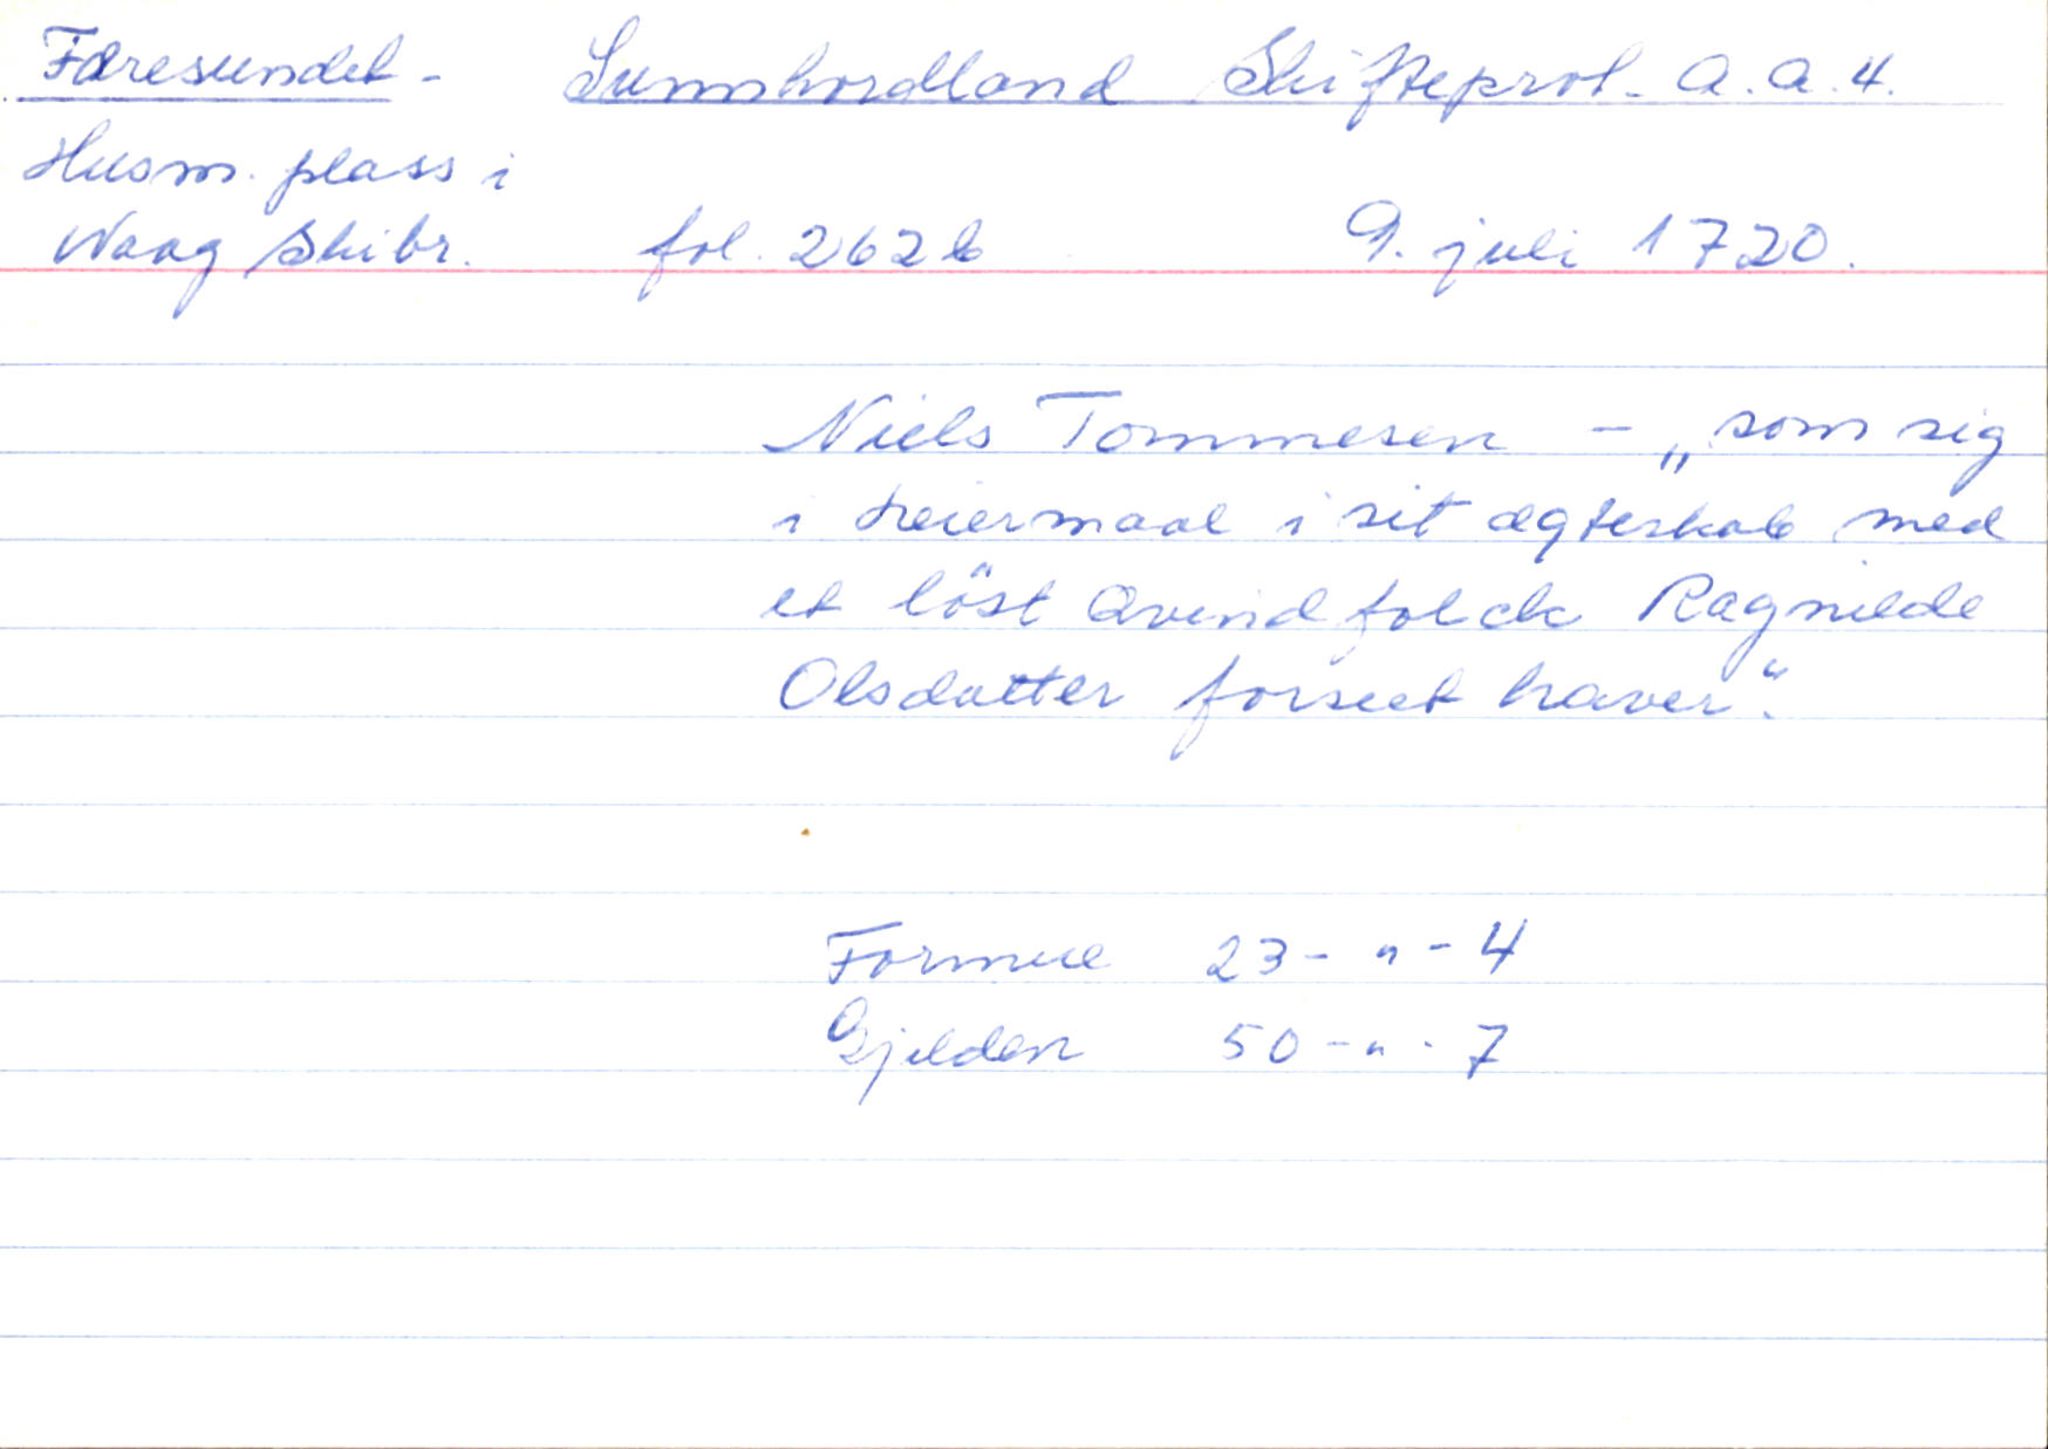 Færesundet - Sunnhordland Skifteprot. A.a.4.
Husm. plass i
Waag Skibr. fol. 262b 9. juli 1720.
Niels Tommesen - „som sig
i leiermaal i sit ægteskab med
et löst qvindfolck Ragnilde
Olsdatter forseet haver“.
Formue 23 - " - 4
Gjelden 50 - " - 7